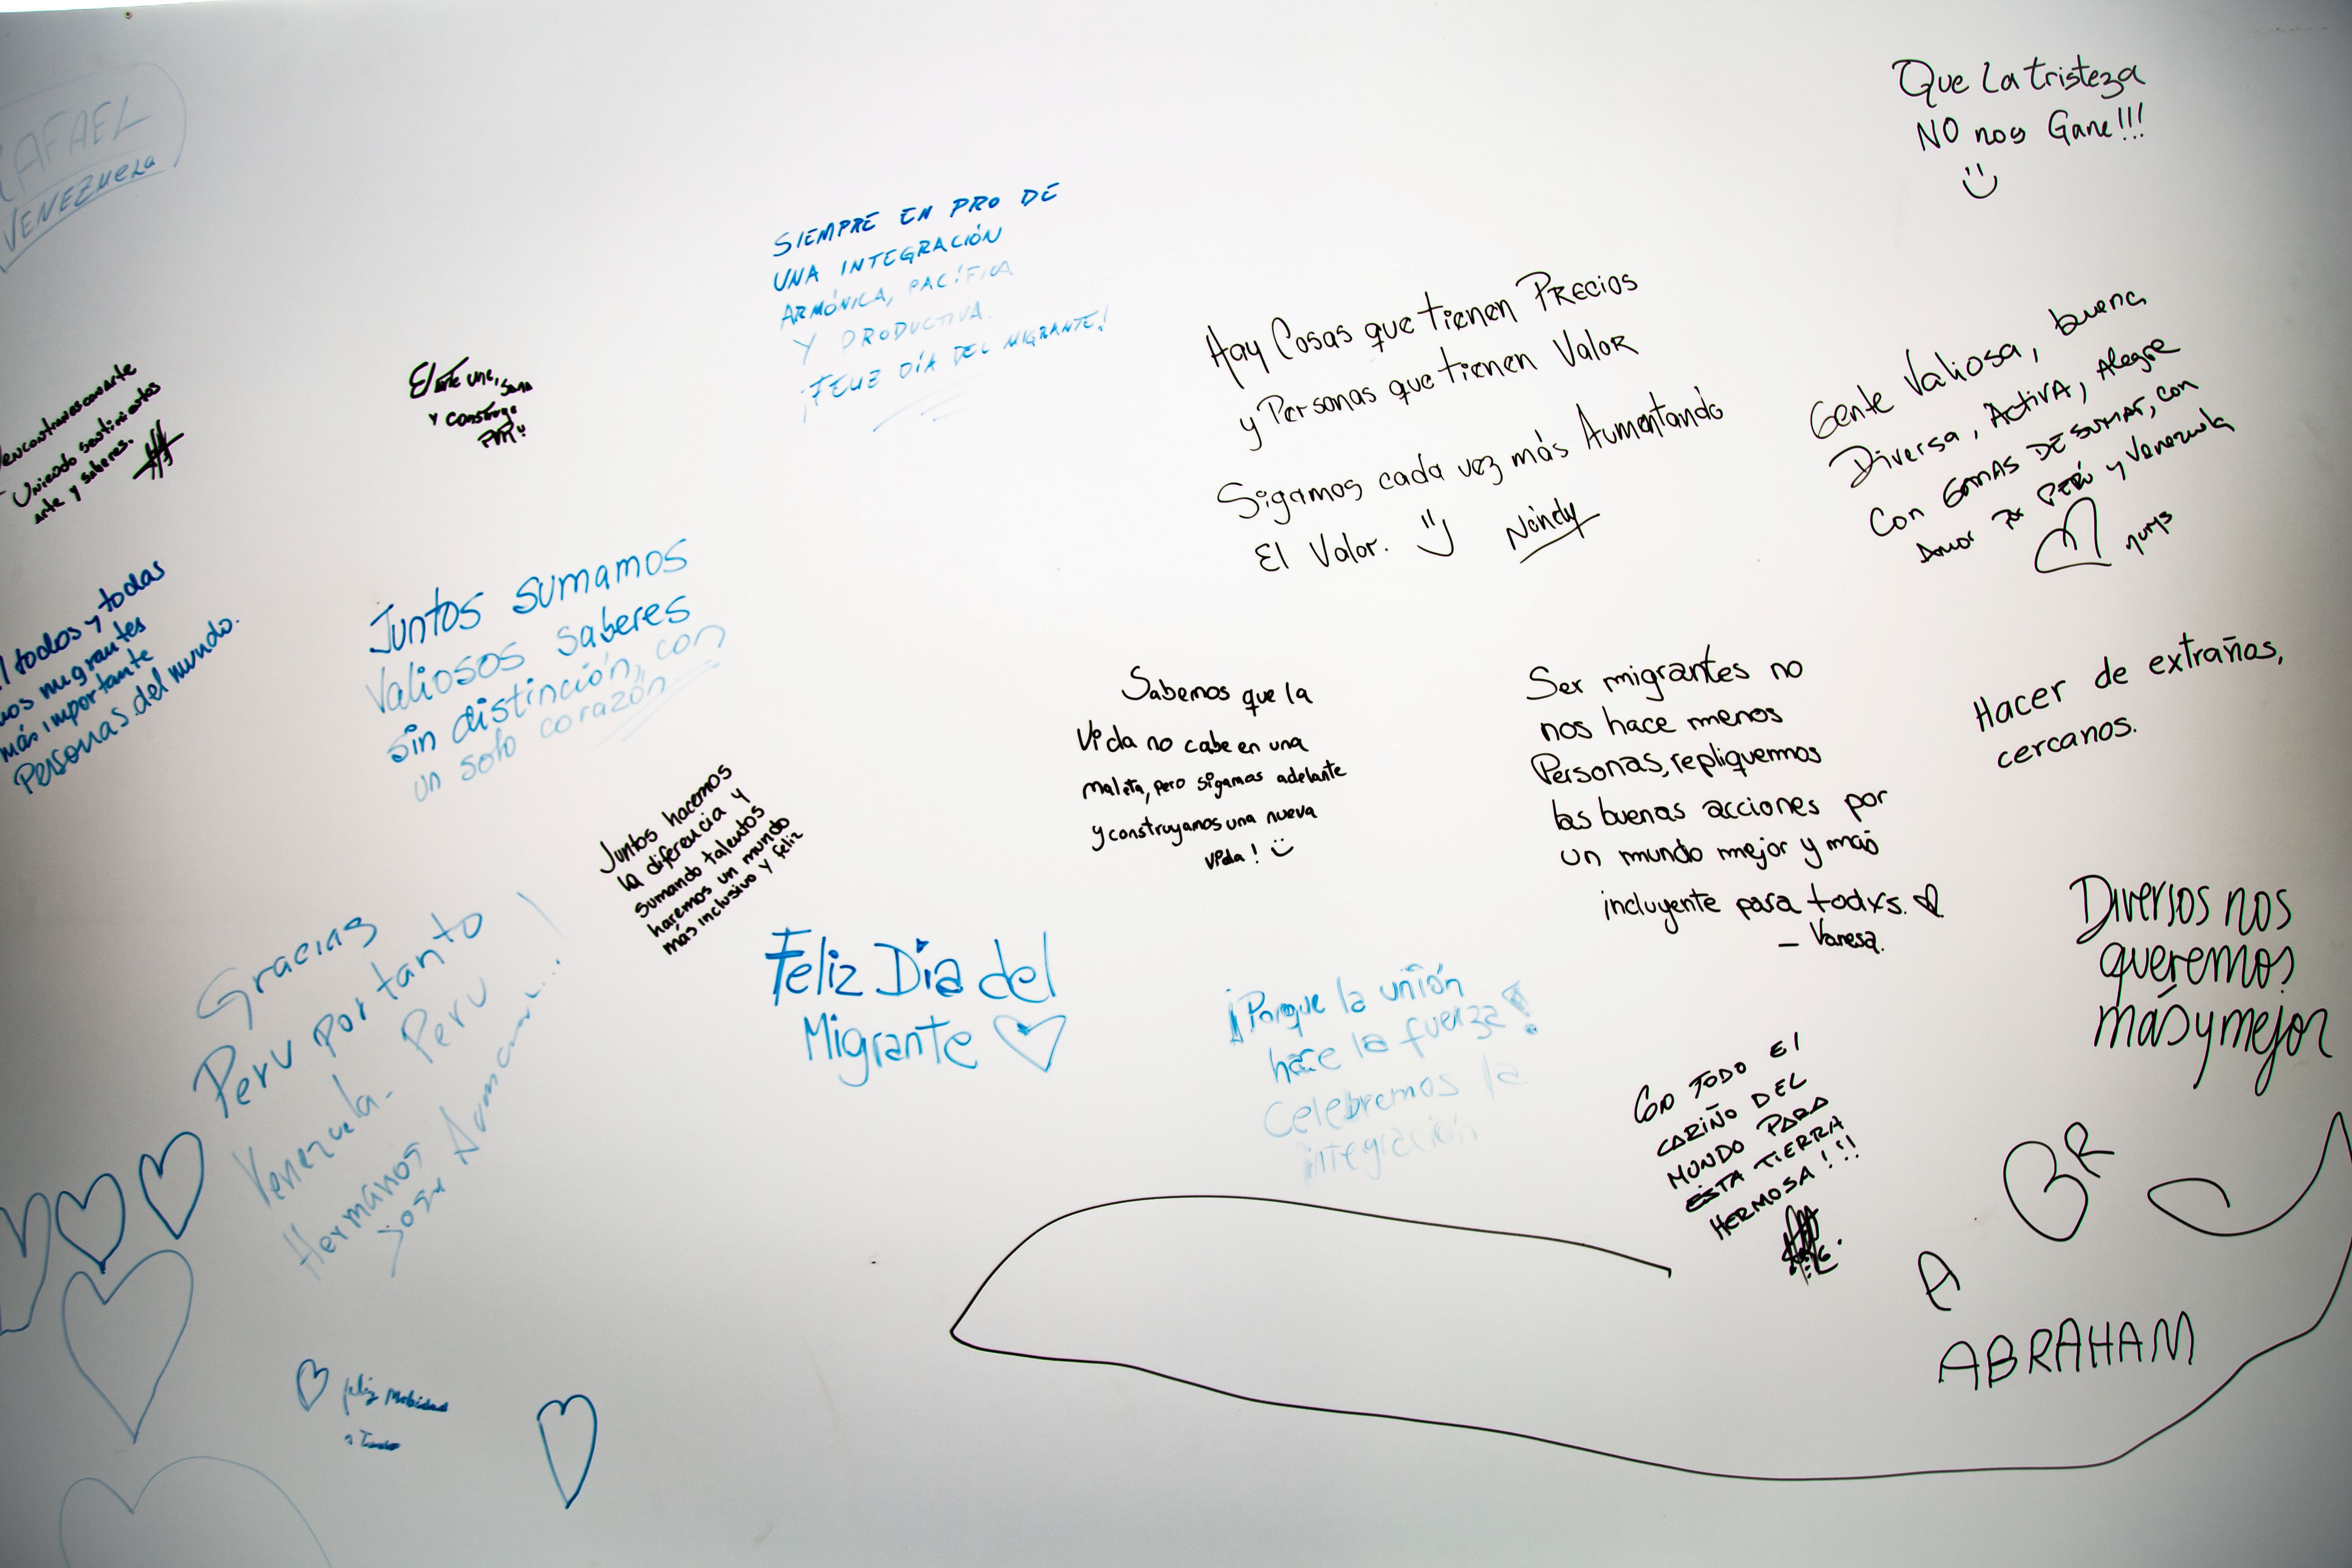 RAFAEL
VENEZUELA
encontrarnos con arte
Uniendo sentimientos
arte y saberes.
El arte une, sana
y construye
SIEMPRE EN PRO DE
UNA INTEGRACIÓN
ARMÓNICA, PACÍFICA
Y PRODUCTIVA.
¡FELIZ DÍA DEL MIGRANTE!
Hay Cosas que tienen PRECIOS
y Personas que tienen Valor
Sigamos cada vez más Aumentando
El Valor.
Nandy
Que La tristeza
NO nos Gane!!!
Gente Valiosa, buena
Diversa, Activa, Alegre
Con GANAS DE SUMAR, con
Amor Por PERÚ y Venezuela
nurys
todos y todas
nos migrantes
más importante
Personas del mundo.
Juntos sumamos
Valiosos saberes
sin distinción, con
un solo corazón
Juntos hacemos
la diferencia y
sumando talentos
haremos un mundo
más inclusivo y feliz
Sabemos que la
Vida no cabe en una
maleta, pero sigamos adelante
y construyamos una nueva
vida!
Ser migrantes no
nos hace menos
Personas, repliquemos
las buenas acciones por
un mundo mejor y más
incluyente para todxs.
— Vanesa.
Hacer de extraños,
cercanos.
Diversos nos
queremos
más y mejor
Gracias
Peru por tanto
Venezuela - Peru
Hermanos
Feliz Día del
Migrante
¡Porque la unión
hace la fuerza!
Celebremos la
integración
CON TODO El
CARIÑO DEL
MUNDO PARA
ESTA TIERRA
HERMOSA!!!
A BR
ABRAHAM
feliz